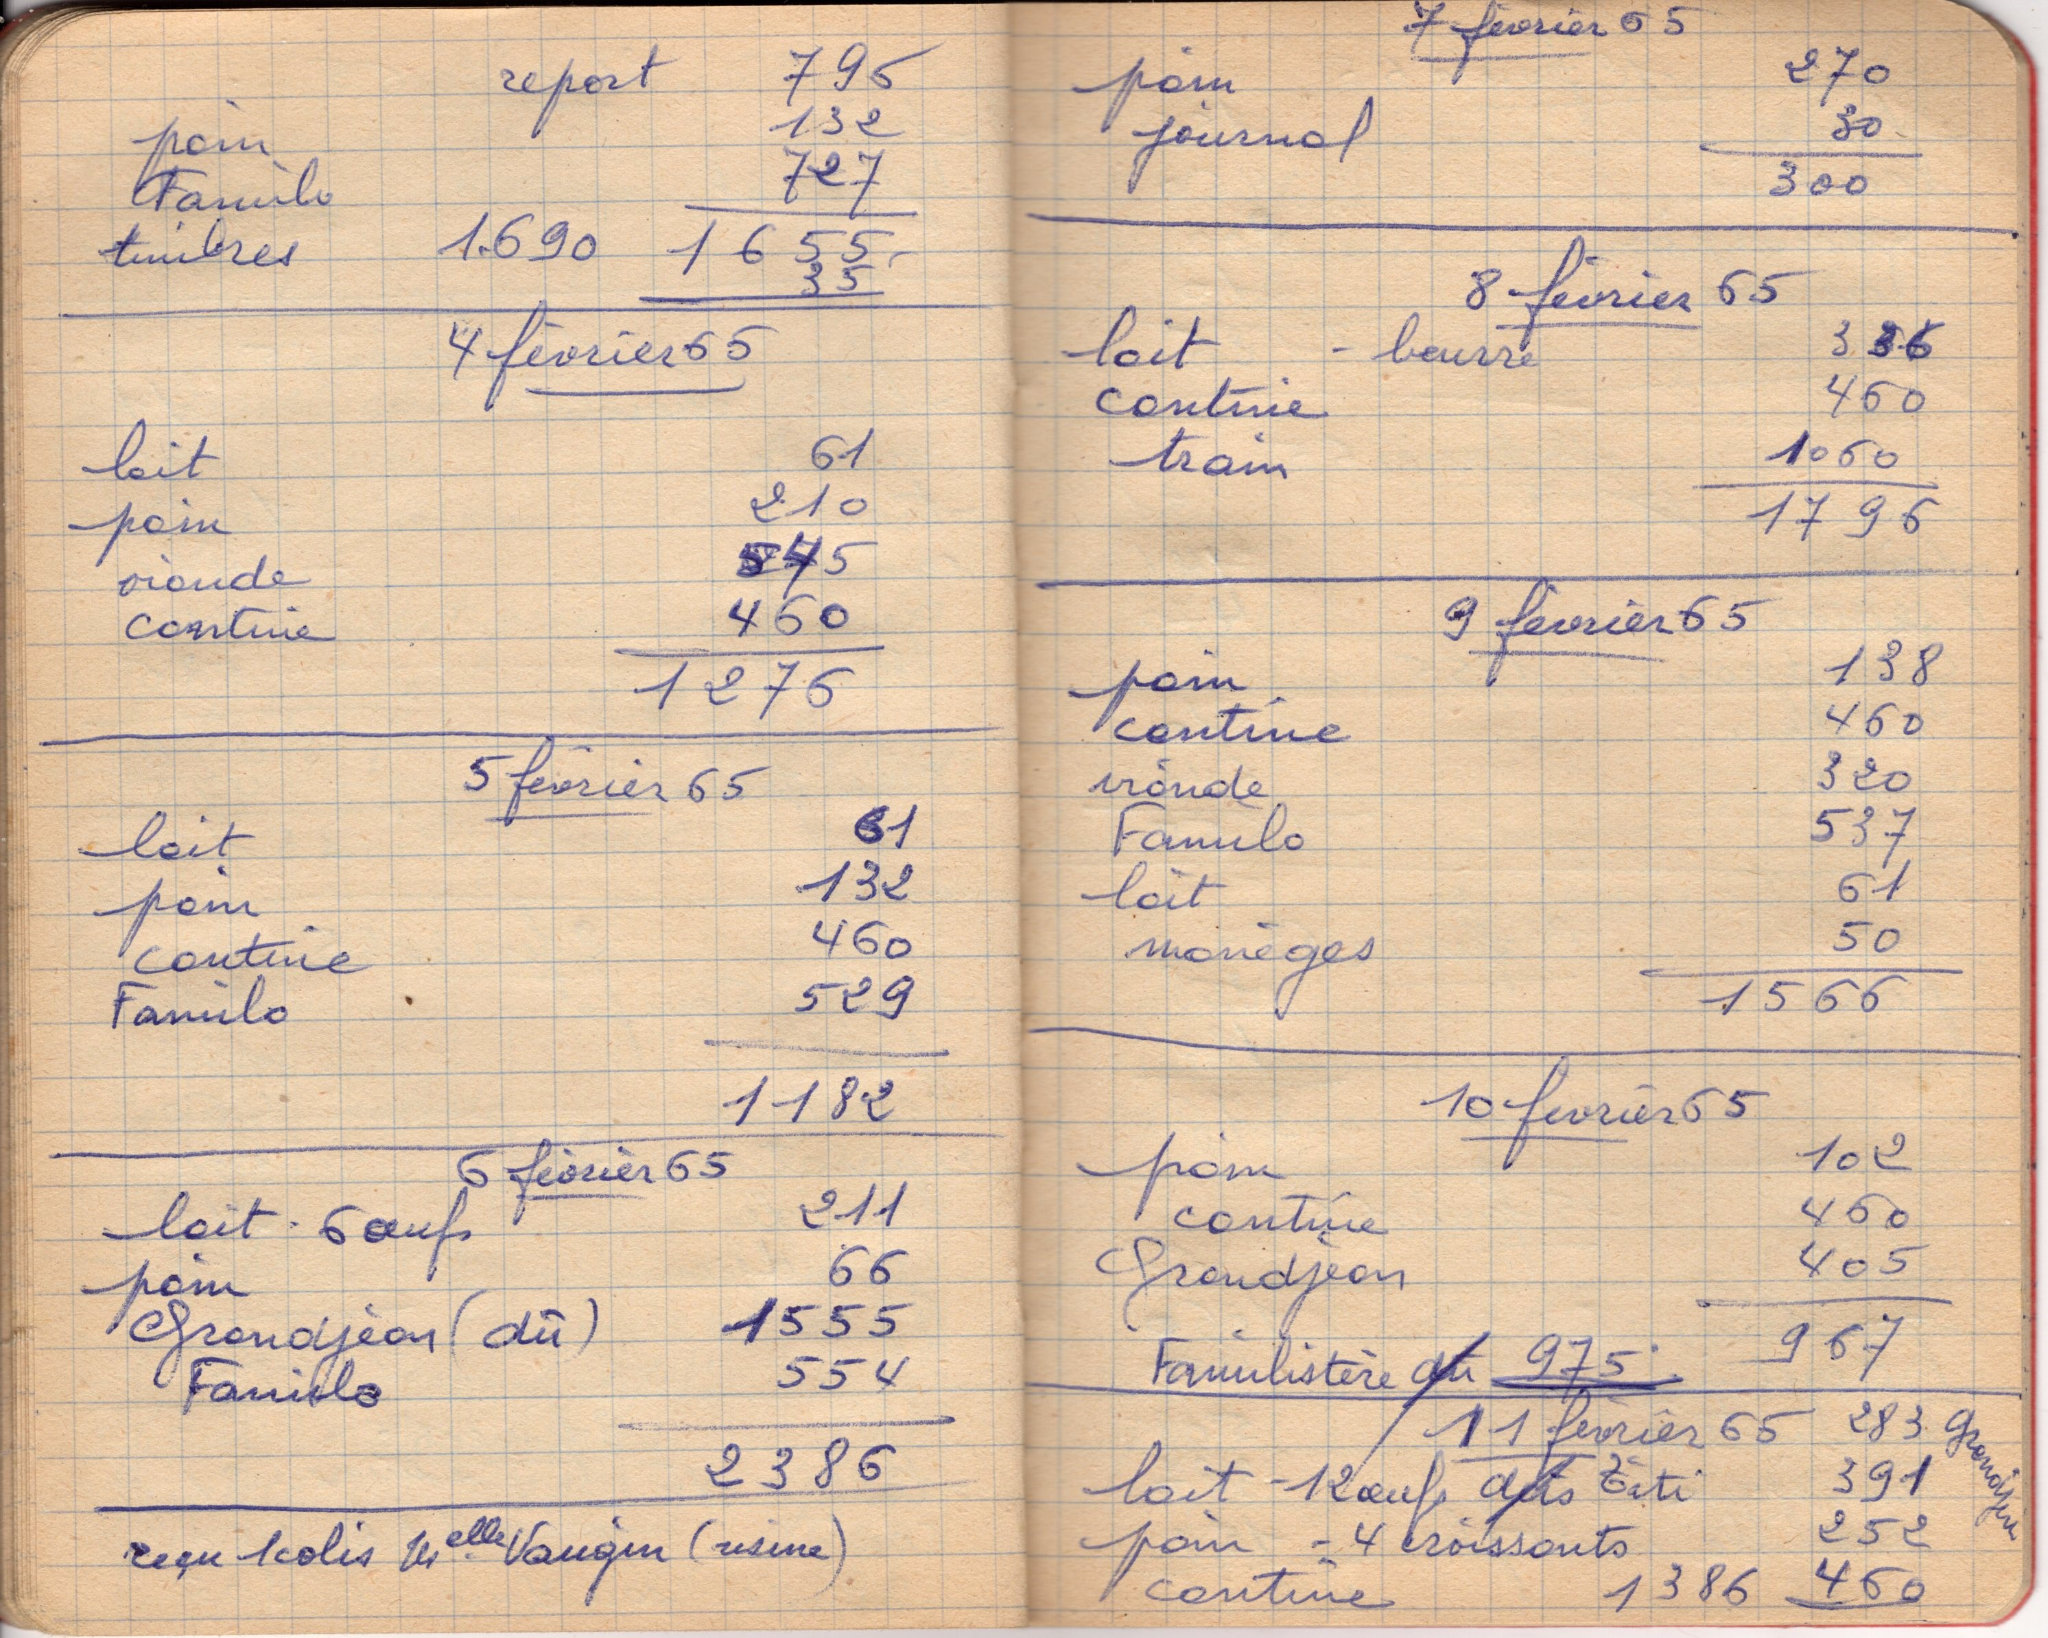 report 795
pain 132
Familo 727
timbres 1.690 1655.
35
4 février 65
lait 61
pain 210
viande 545
cantine 460
1276
5 février 65
lait 61
pain 132
cantine 460
Familo 529
1182
6 février 65
lait. 6 œufs 211
pain 66
Grandjean (dû) 1555
Familo 554
2386
reçu 1 colis Melle Vaugin (usine)
7 février 65
pain 270
journal 30
300
8 février 65
lait - beurre 336
cantine 460
train 1060
1796
9 février 65
pain 138
cantine 460
viande 320
Familo 537
lait 61
manèges 50
1566
10 février 65
pain 102
cantine 460
Grandjean 405
967
Familistère dû 975
11 février 65 283 Grandjean
lait - 12 œufs dûs Titi 391
pain - 4 croissants 252
cantine 1386 460